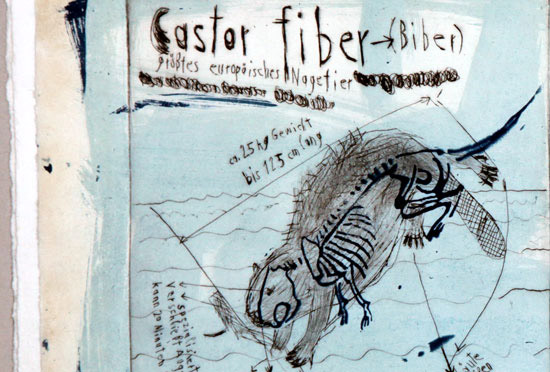 Castor fiber → (Biber)
größtes europäisches Nagetier
ca. 25 kg Gewicht
bis 125 cm lang
spezialisiert
verschließt
kann 20 Minuten